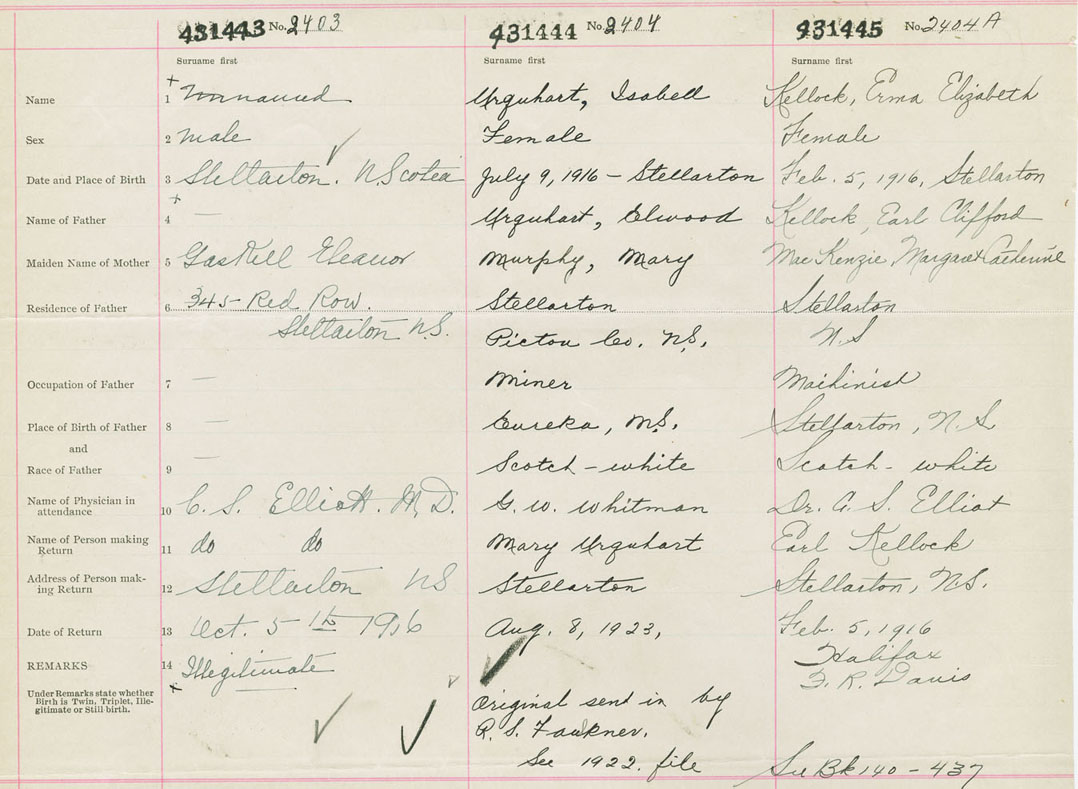 431443 No. 2403 431444 No. 2404 931445 No. 2404 A
Surname first Surname first Surname first
Name 1 Unnamed Urquhart, Isabell Kellock, Erma Elizabeth
Sex 2 Male Female Female
Date and Place of Birth 3 Stellarton. N. Scotia July 9, 1916 - Stellarton Feb. 5, 1916, Stellarton
Name of Father 4 — Urquhart, Elwood Kellock, Earl Clifford
Maiden Name of Mother 5 Gaskell Eleanor Murphy, Mary MacKenzie, Margaret Catherine
Residence of Father 6 345 Red Row. Stellarton Stellarton
Stellarton N.S. Pictou Co. N.S. N.S
Occupation of Father 7 — Miner Machinist
Place of Birth of Father 8 — Eureka, N.S. Stellarton, N.S.
and
Race of Father 9 — Scotch - white Scotch - white
Name of Physician in
attendance 10 C. S. Elliott. M.D. G. W. Whitman Dr. C. S. Elliot
Name of Person making
Return 11 do do Mary Urquhart Earl Kellock
Address of Person mak-
ing Return 12 Stellarton NS Stellarton Stellarton, N.S.
Date of Return 13 Oct. 5th 1916 Aug. 8, 1923, Feb. 5, 1916
REMARKS 14 Illegitimate Halifax
F. R. Davis
Under Remarks state whether
Birth is Twin, Triplet, Ille-
gitimate or Still-birth.
Original sent in by
R. S. Faulkner.
See 1922 file See Bk 140 - 437